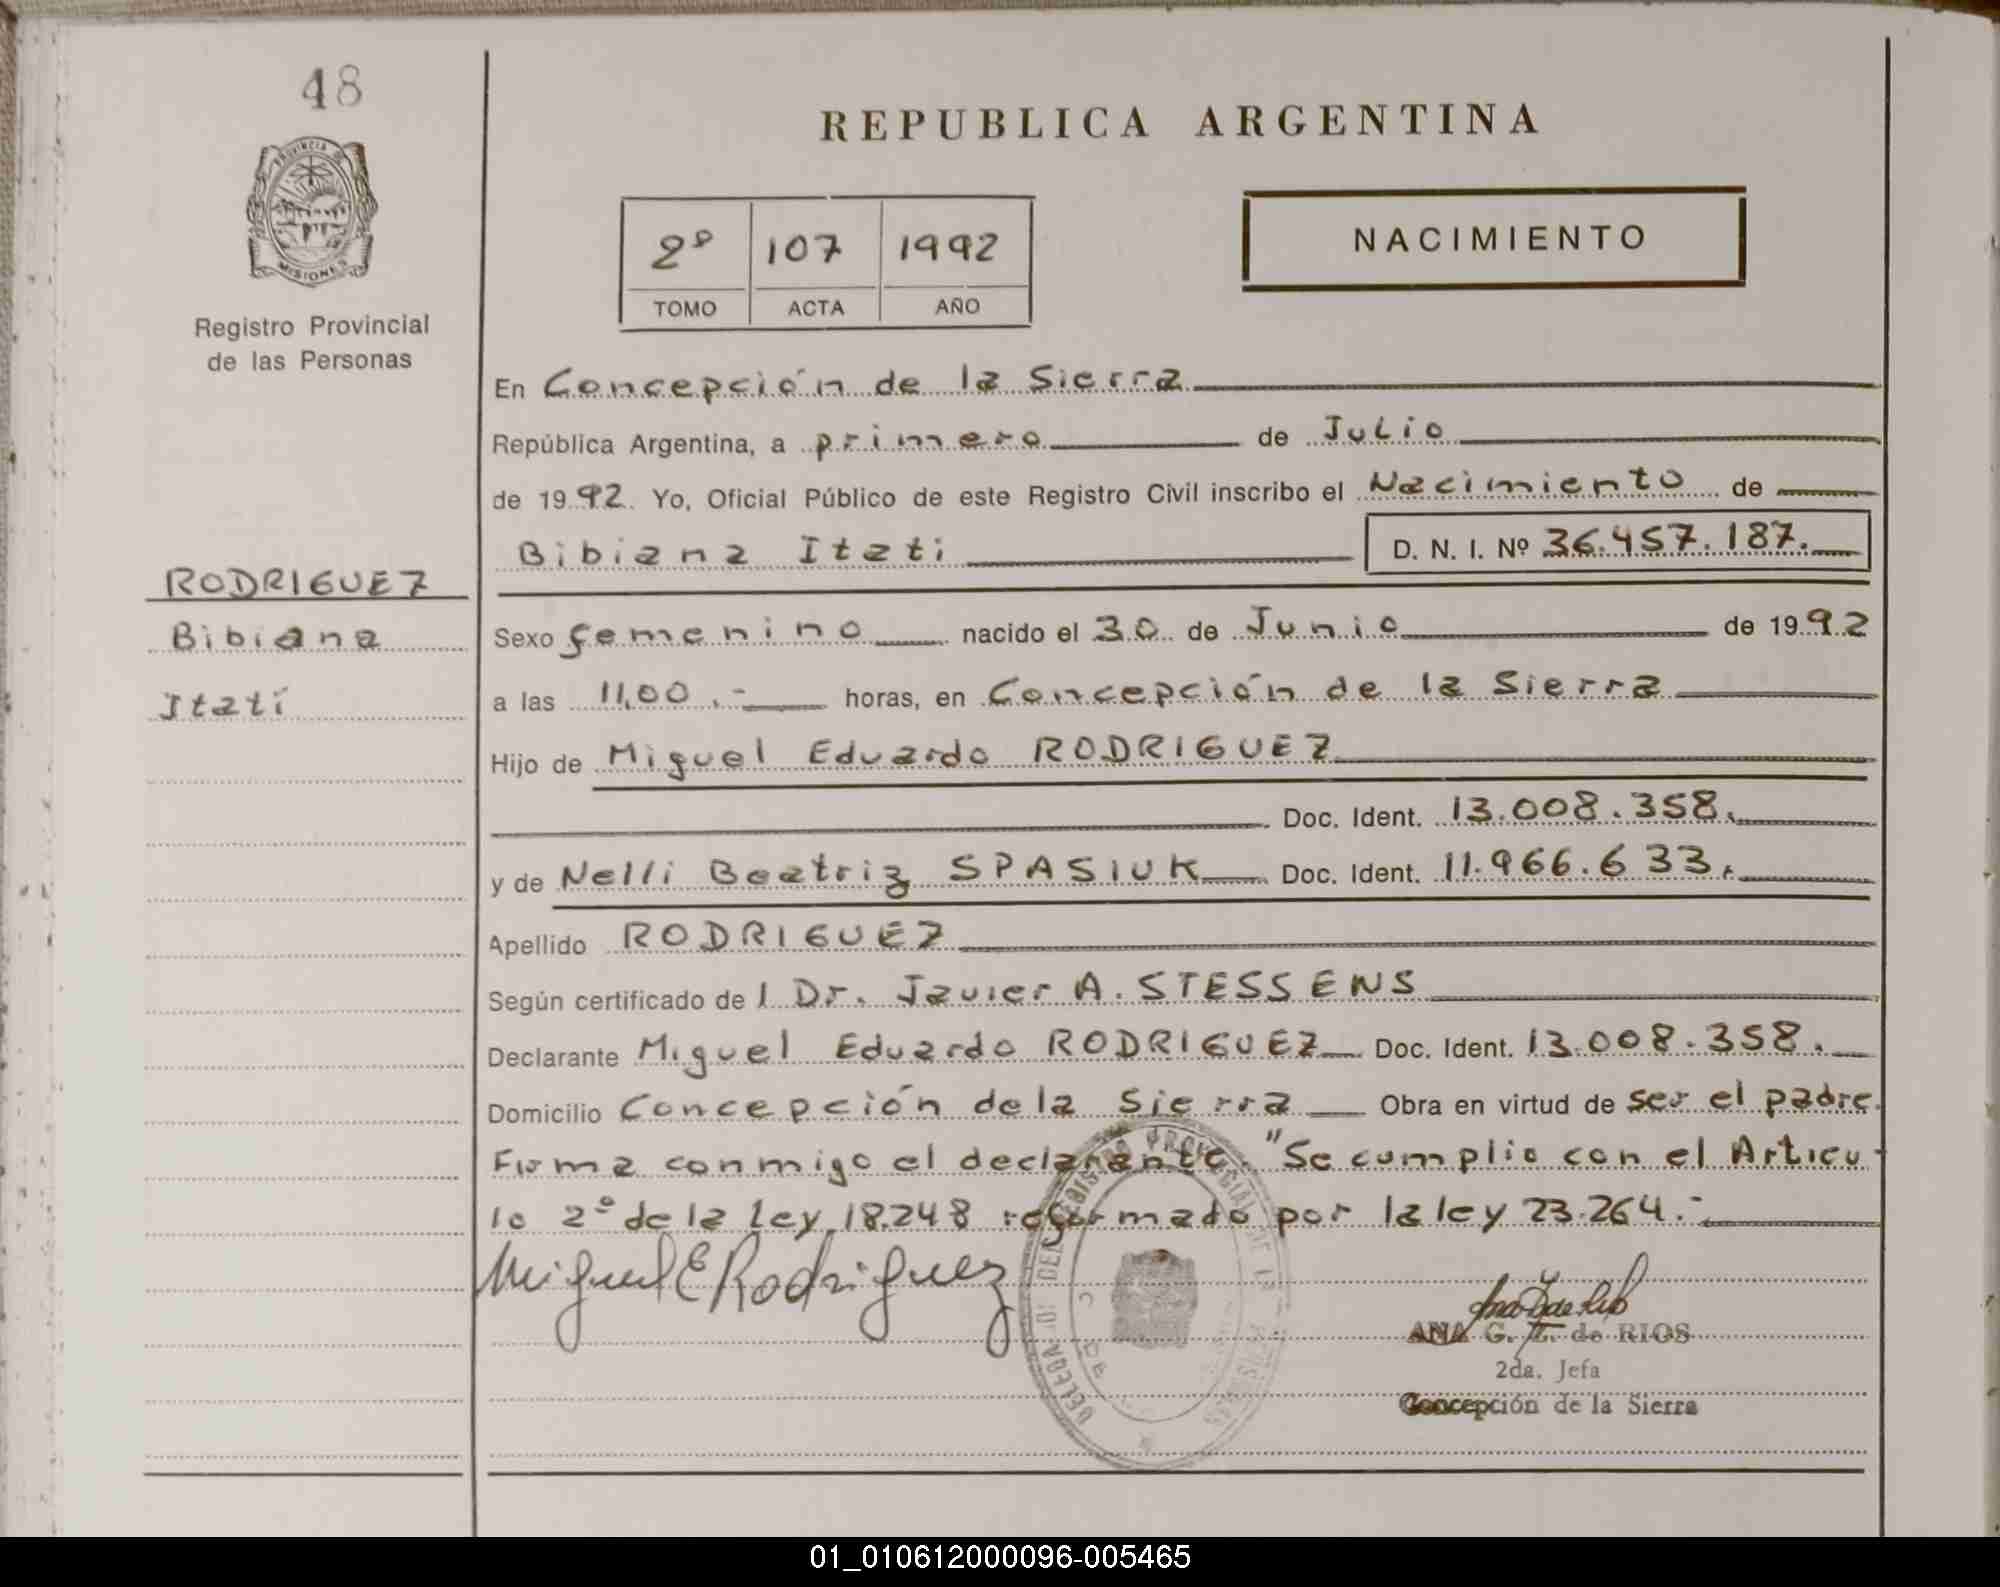 48
PROVINCIA DE
MISIONES
Registro Provincial
de las Personas
RODRIGUEZ
Bibiana
Itatí
REPUBLICA ARGENTINA
2º 107 1992
TOMO ACTA AÑO
NACIMIENTO
En Concepción de la Sierra
República Argentina, a primero de Julio
de 1992. Yo, Oficial Público de este Registro Civil inscribo el Nacimiento de
Bibiana Itati D. N. I. Nº 36.457.187.
Sexo femenino nacido el 30 de Junio de 1992
a las 11,00.- horas, en Concepción de la Sierra
Hijo de Miguel Eduardo RODRIGUEZ
Doc. Ident. 13.008.358.
y de Nelli Beatriz SPASIUK Doc. Ident. 11.966.633.
Apellido RODRIGUEZ
Según certificado de l Dr. Javier A. STESSENS
Declarante Miguel Eduardo RODRIGUEZ Doc. Ident. 13.008.358.
Domicilio Concepción de la Sierra Obra en virtud de ser el padre.
Firma conmigo el declarante. "Se cumplio con el Articu-
lo 2º de la Ley 18.248 reformado por la ley 23.264.-
Miguel E Rodriguez
ANA G. Z. de RIOS
2da. Jefa
Concepción de la Sierra
01_010612000096-005465